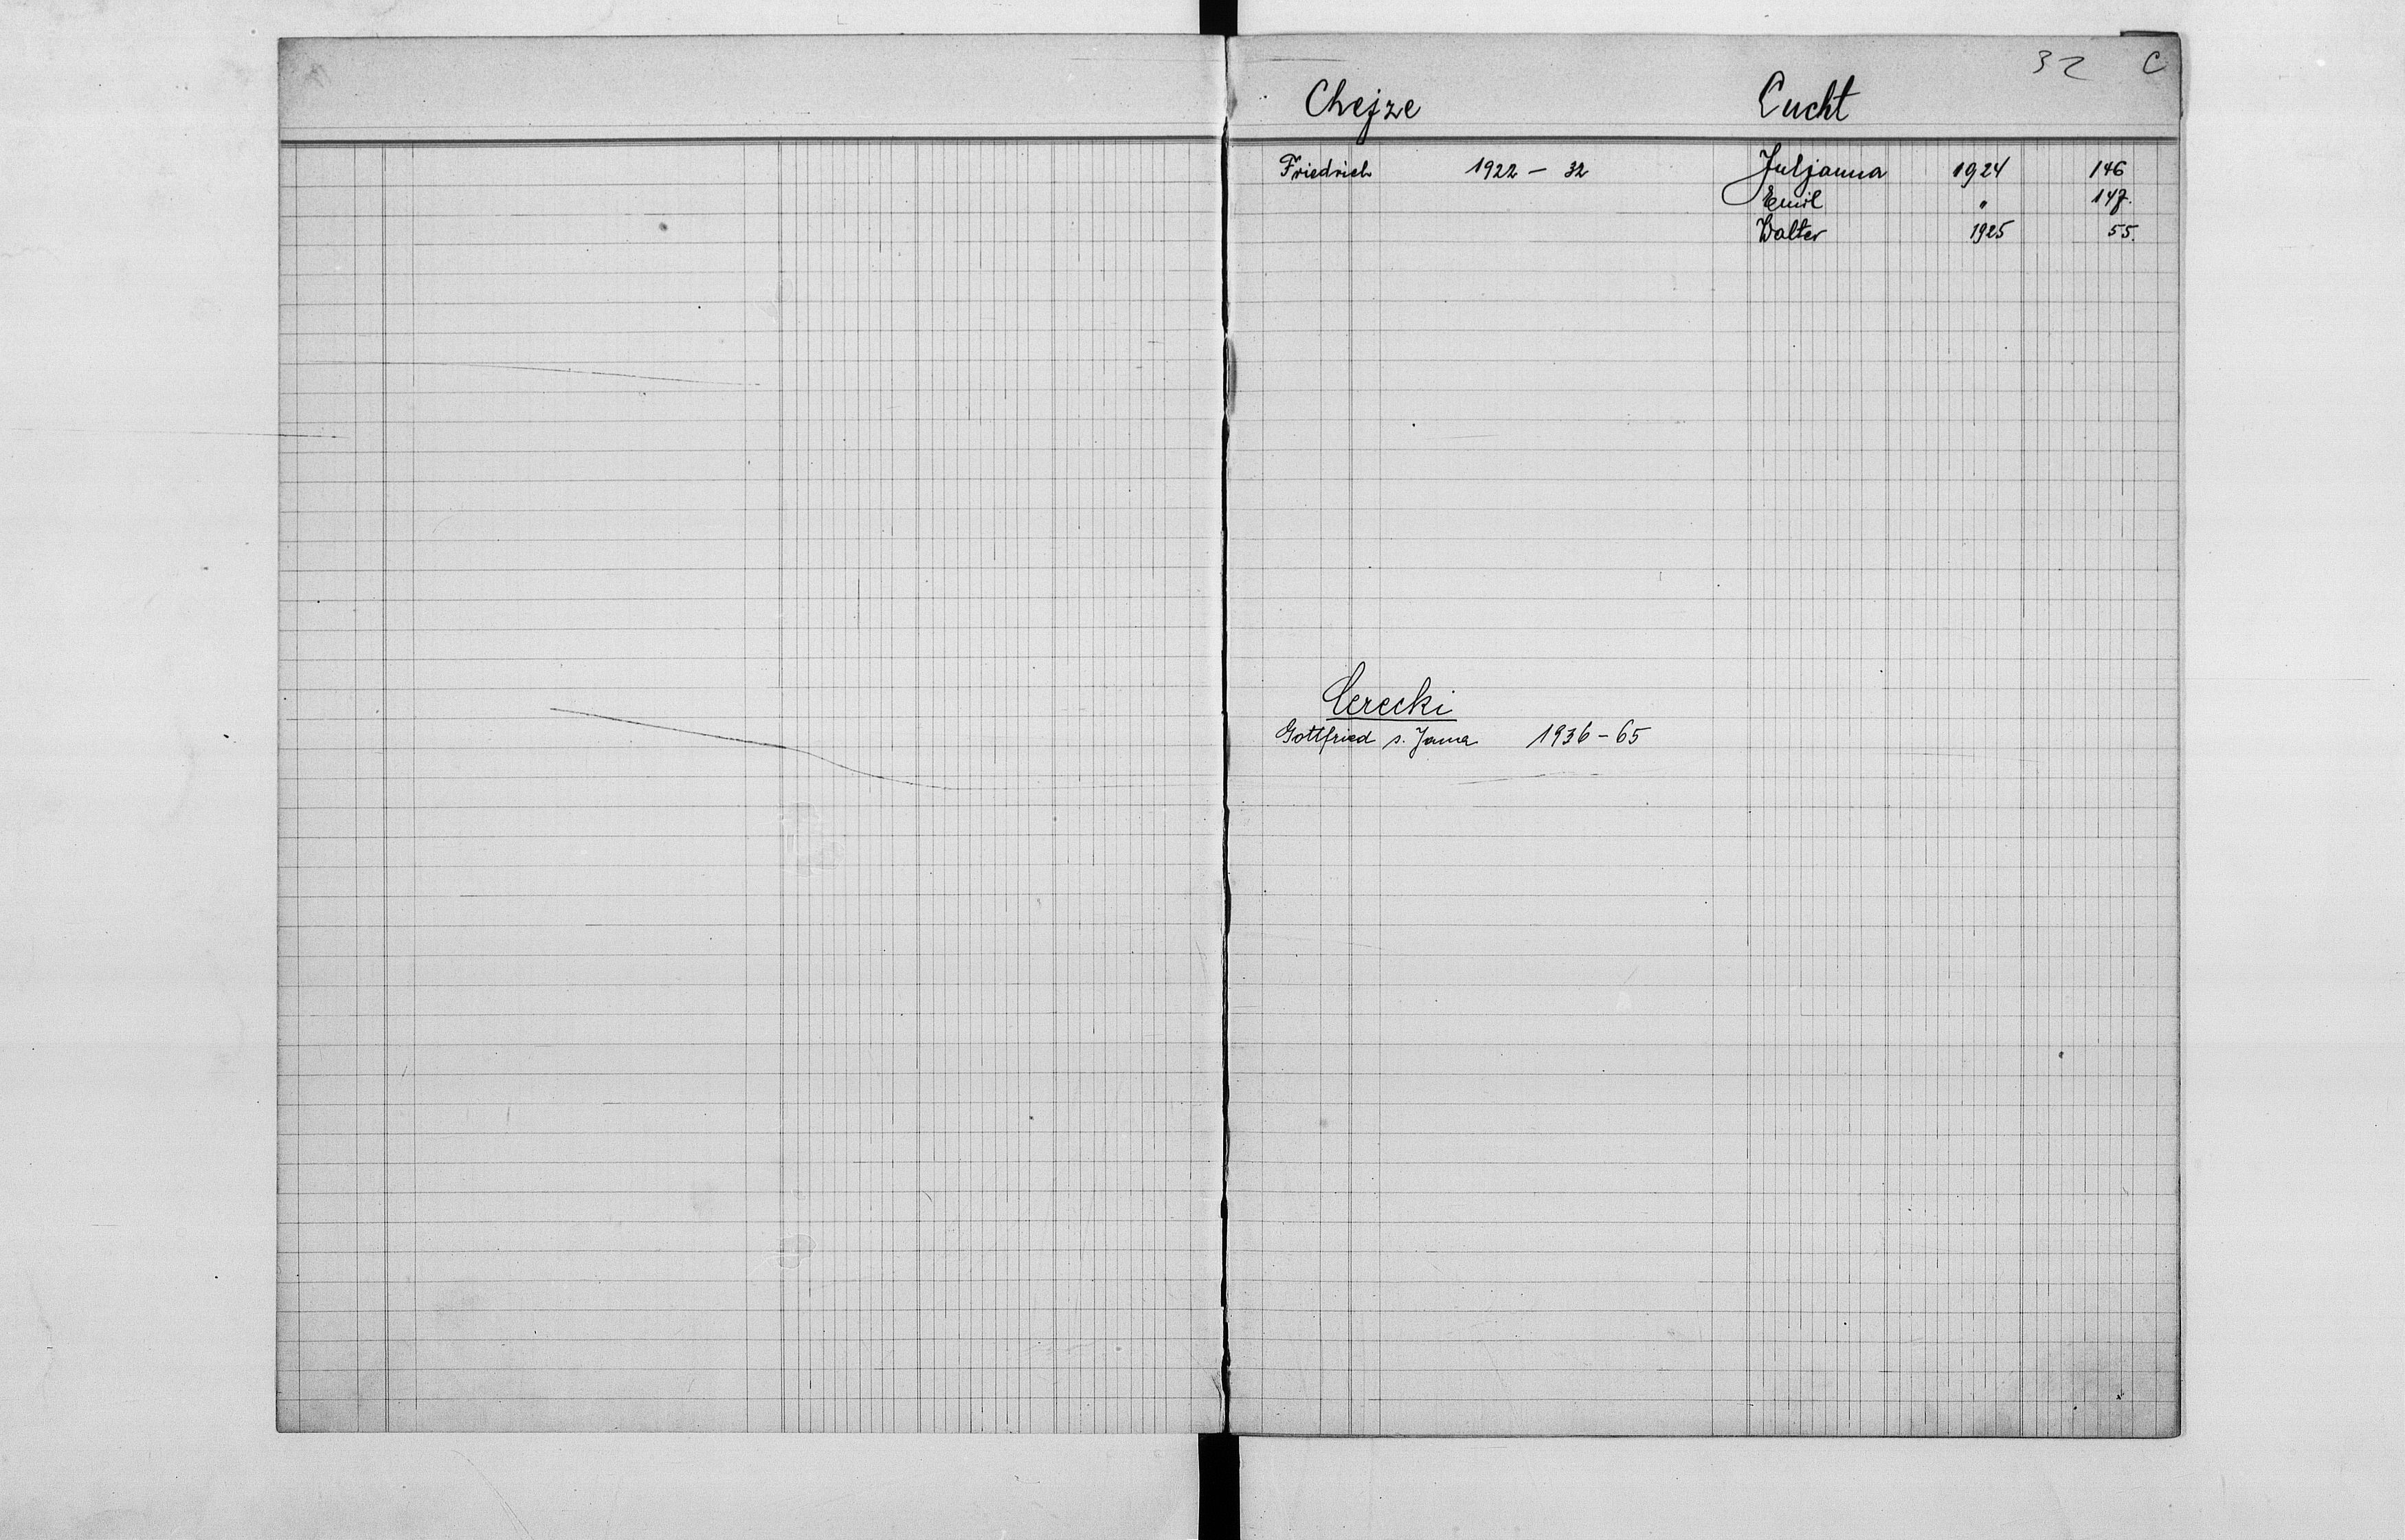 32 C
Chejze
Friedrich 1922 – 32
Cerecki
Gottfried s. Jana 1936 – 65
Cucht
Juljanna 1924 146
Emil " 147.
Walter 1925 55.